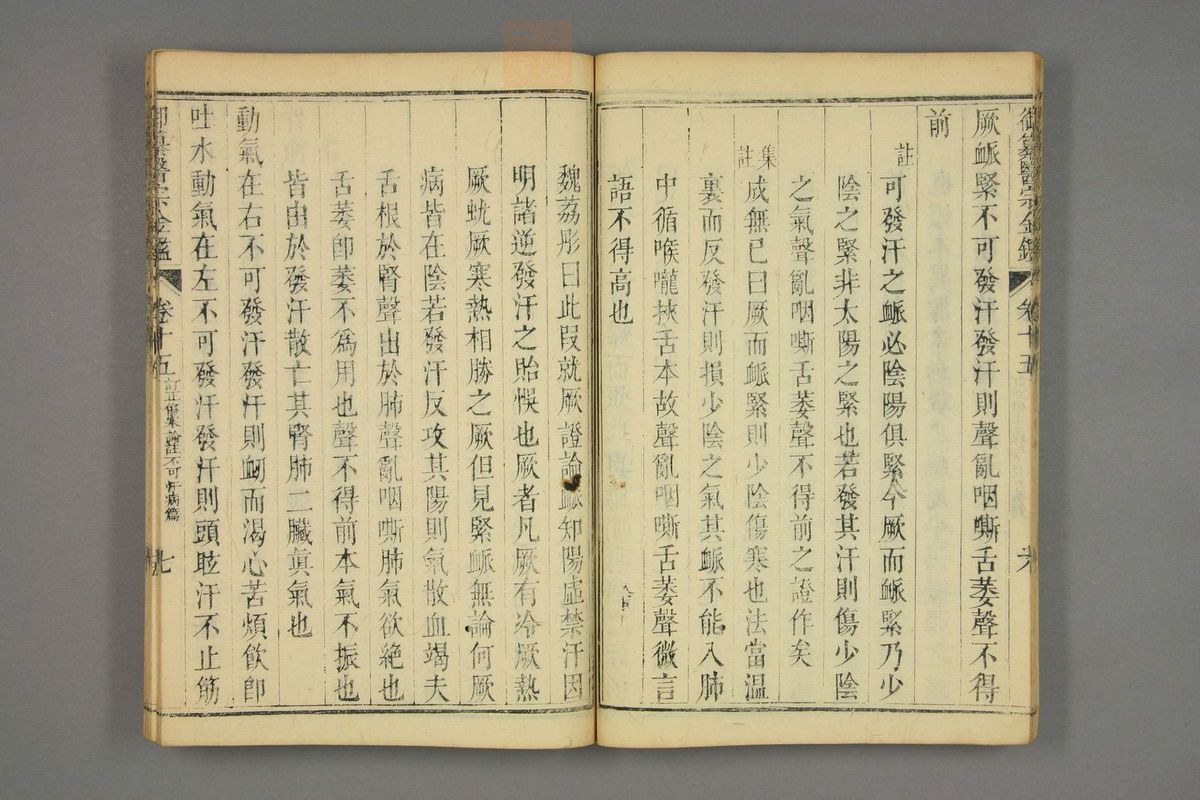 御纂醫宗金鑑 卷十五 六
厥脈緊不可發汗發汗則聲亂咽嘶舌萎聲不得
前
註
可發汗之脈必陰陽俱緊今厥而脈緊乃少
陰之緊非太陽之緊也若發其汗則傷少陰
之氣聲亂咽嘶舌萎聲不得前之證作矣
集註
成無已曰厥而脈緊則少陰傷寒也法當溫
裏而反發汗則損少陰之氣其脈不能入肺
中循喉嚨挾舌本故聲亂咽嘶舌萎聲微言
語不得高也
魏荔彤曰此叚就厥證論脈知陽虛禁汗因
明諸逆發汗之貽悞也厥者凡厥有冷厥熱
厥蚘厥寒熱相勝之厥但見緊脈無論何厥
病皆在陰若發汗反攻其陽則氣散血竭夫
舌根於腎聲出於肺聲亂咽嘶肺氣欲絕也
舌萎卽萎不爲用也聲不得前本氣不振也
皆由於發汗散亡其腎肺二臟眞氣也
動氣在右不可發汗發汗則衂而渴心苦煩飮卽
吐水動氣在左不可發汗發汗則頭眩汗不止筋
御纂醫宗金鑑 卷十五 訂正傷寒論註不可汗病篇 七